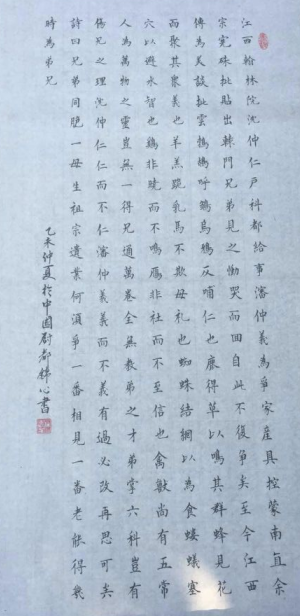 江西翰林院沈仲仁戶科都給事潘仲義為爭家產具控蒙南直余
宗憲硃批貼出棘門兄弟見之慟哭而回自此不復爭矣至今江西
傳為美談批雲鵓鴣呼烏鴉反哺仁也鹿得草以鳴其群蜂見花
而聚其眾義也羊羔跪乳馬不欺母礼也蜘蛛結網以為食螻蟻塞
穴以避水智也鷄非曉而不鳴鴈非社而不至信也禽獸尚有五常
人為萬物之靈豈無一得兄通萬卷全無教弟之才弟掌六科豈有
傷兄之理沈仲仁仁而不仁潘仲義義而不義有過必改再思可矣
詩曰兄弟同胞一母生祖宗遺業何須爭一番相見一番老能得幾
時為弟兄
乙未仲夏於中國尉都鋒心書